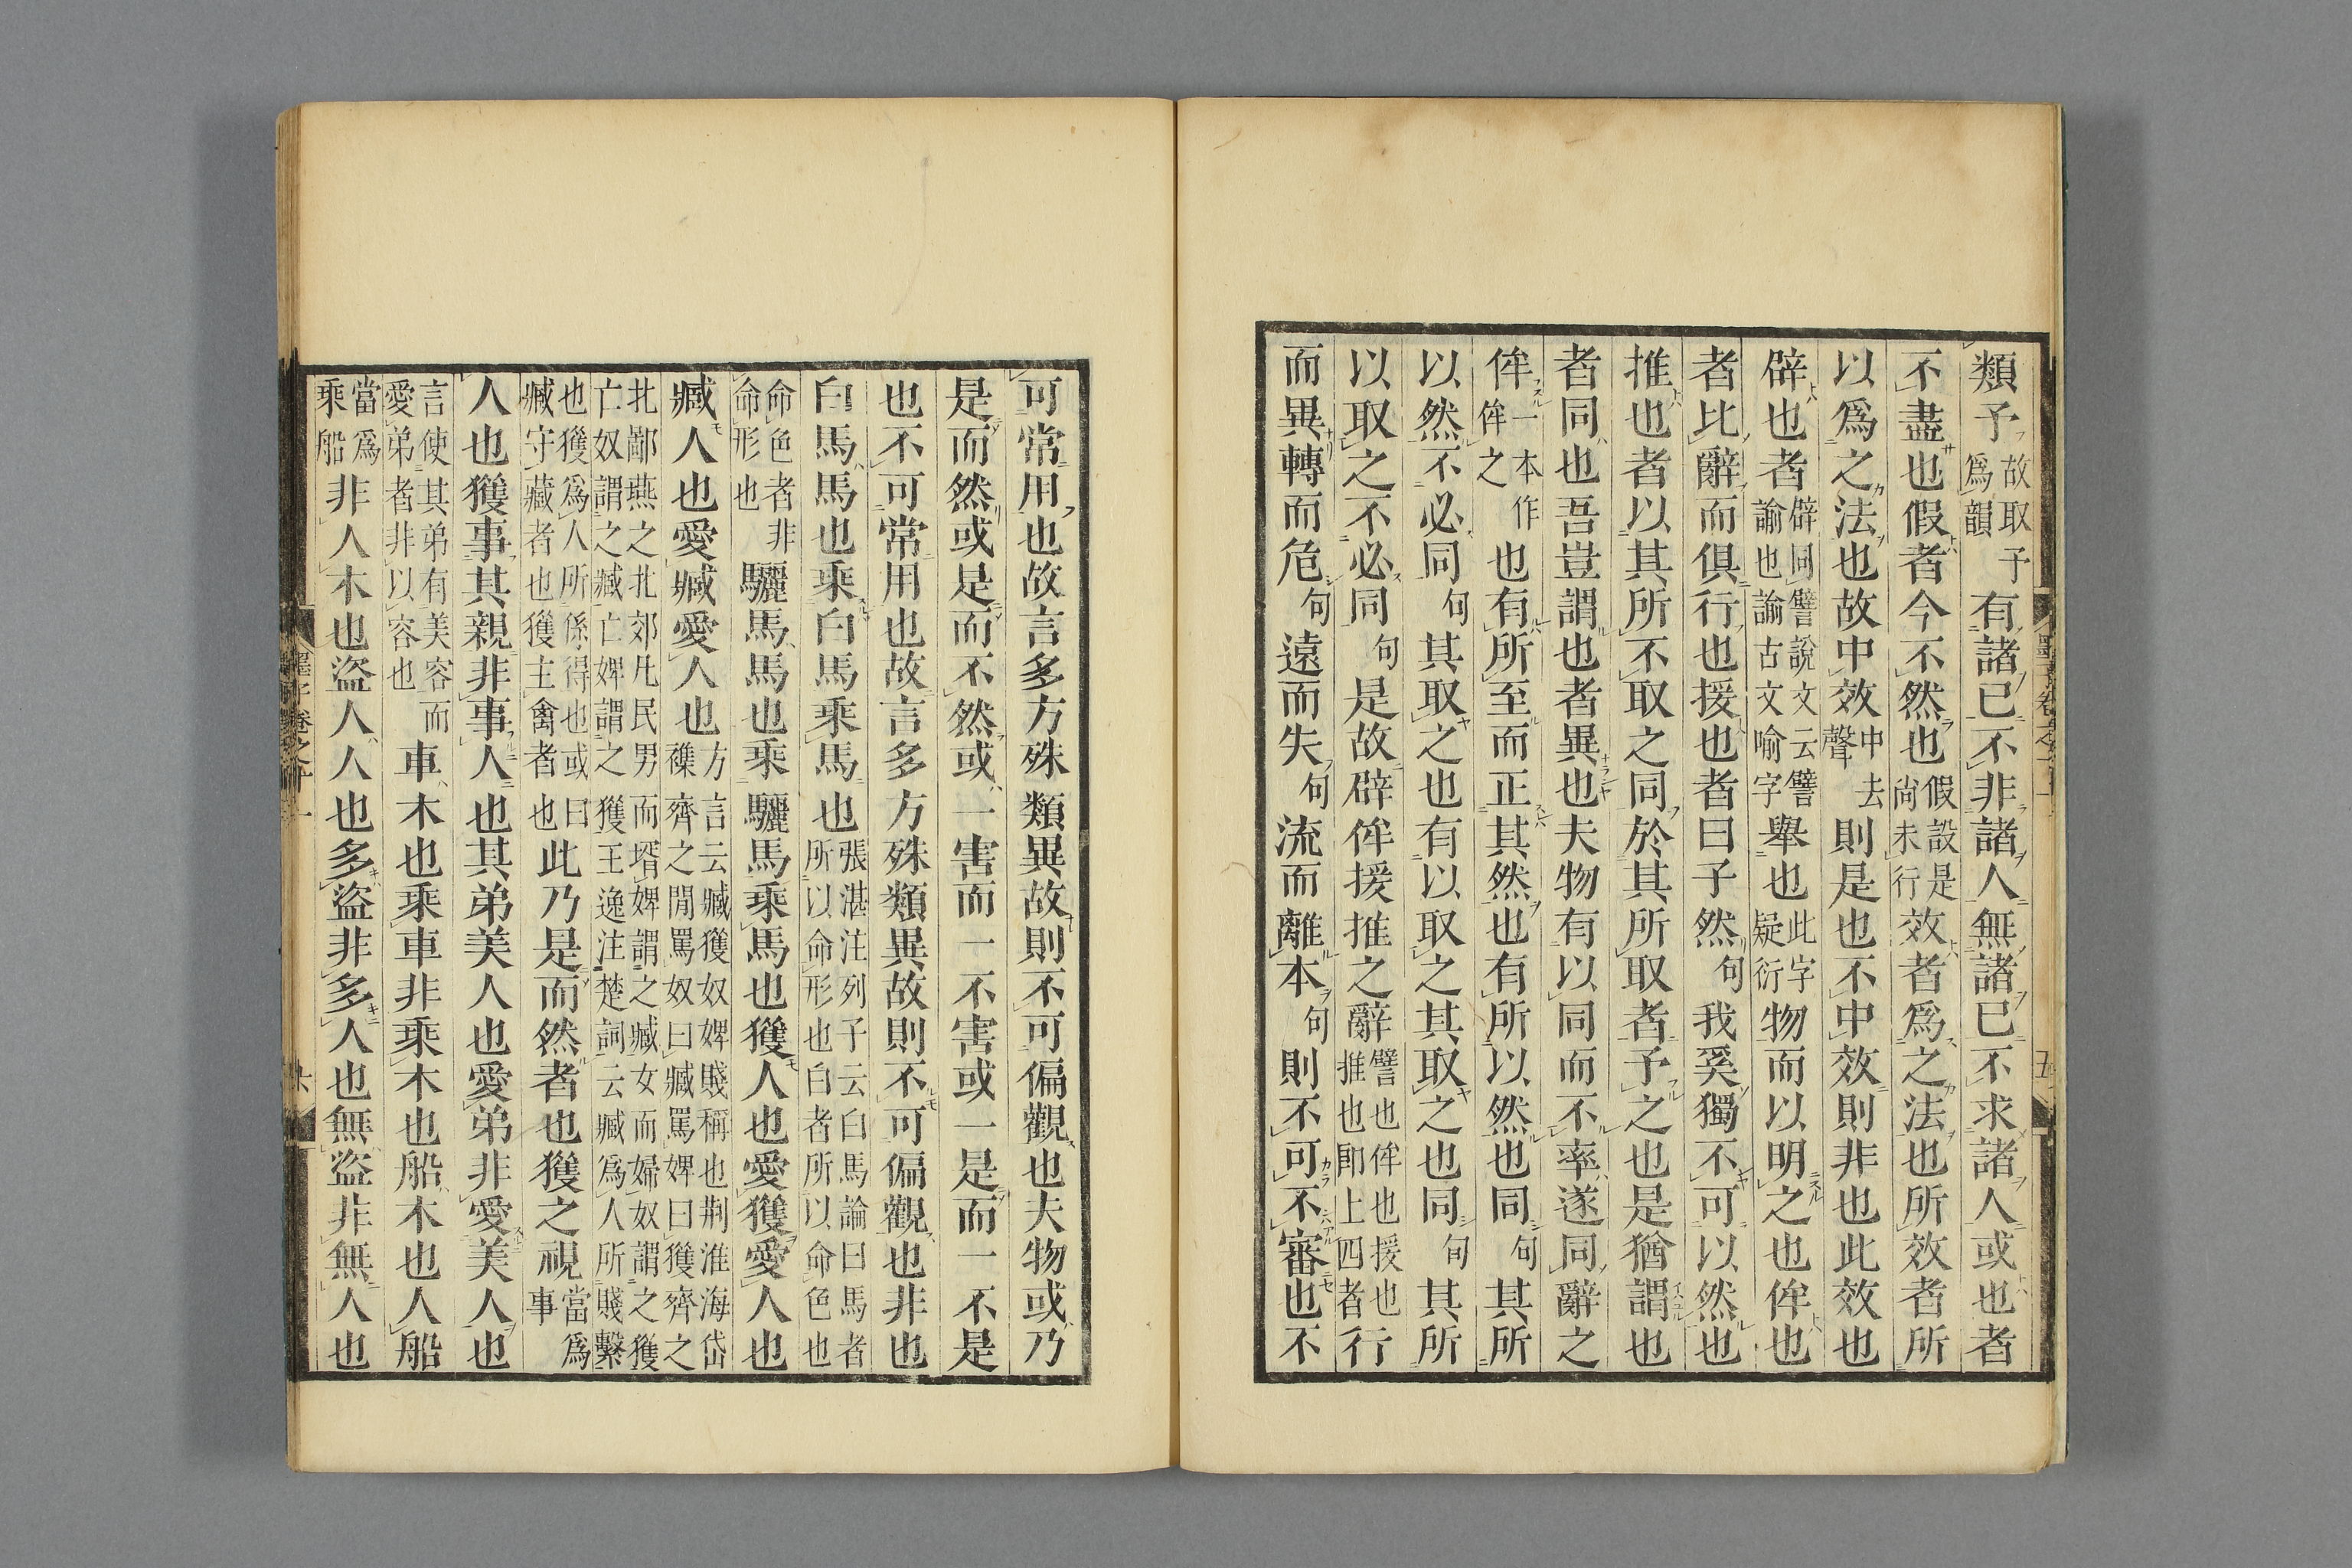 類予故取予爲韻有諸已不非諸人無諸已不求諸人或也者
不盡也假者今不然也假設是尚未行效者爲之法也所效者所
以爲之法也故中效中去聲則是也不中效則非也此效也
辟也者辟同譬說文云譬諭也諭古文喻字舉也此字疑衍物而以明之也侔也
者比辭而俱行也援也者曰子然句我奚獨不可以然也
推也者以其所不取之同於其所取者予之也是猶謂也
者同也吾豈謂也者異也夫物有以同而不率遂同辭之
侔一本作侔之也有所至而正其然也有所以然也同句其所
以然不必同句其取之也有以取之其取之也同句其所
以取之不必同句是故辟侔援推之辭譬也侔也援也推也即上四者行
而異轉而危句遠而失句流而離本句則不可不審也不
可常用也故言多方殊類異故則不可偏觀也夫物或乃
是而然或是而不然或一害而一不害或一是而一不是
也不可常用也故言多方殊類異故則不可偏觀也非也
白馬馬也乘白馬乘馬也張湛注列子云白馬論曰馬者所以命形也白者所以命色也
命色者非命形也驪馬馬也乘驪馬乘馬也獲人也愛獲愛人也
臧人也愛臧愛人也方言云臧獲奴婢賤稱也荆淮海岱襍齊之閒罵奴曰臧罵婢曰獲齊之
北鄙燕之北郊凡民男而壻婢謂之臧女而婦奴謂之獲亡奴謂之臧亡婢謂之獲王逸注楚詞云臧爲人所賤繫
也獲爲人所係得也或曰臧守藏者也獲主禽者也此乃是而然者也獲之視當爲事
人也獲事其親非事人也其弟美人也愛弟非愛美人也
言使其弟有美容而愛弟者非以容也車木也乘車非乘木也船木也人船
當爲乘船非人木也盜人人也多盜非多人也無盜非無人也